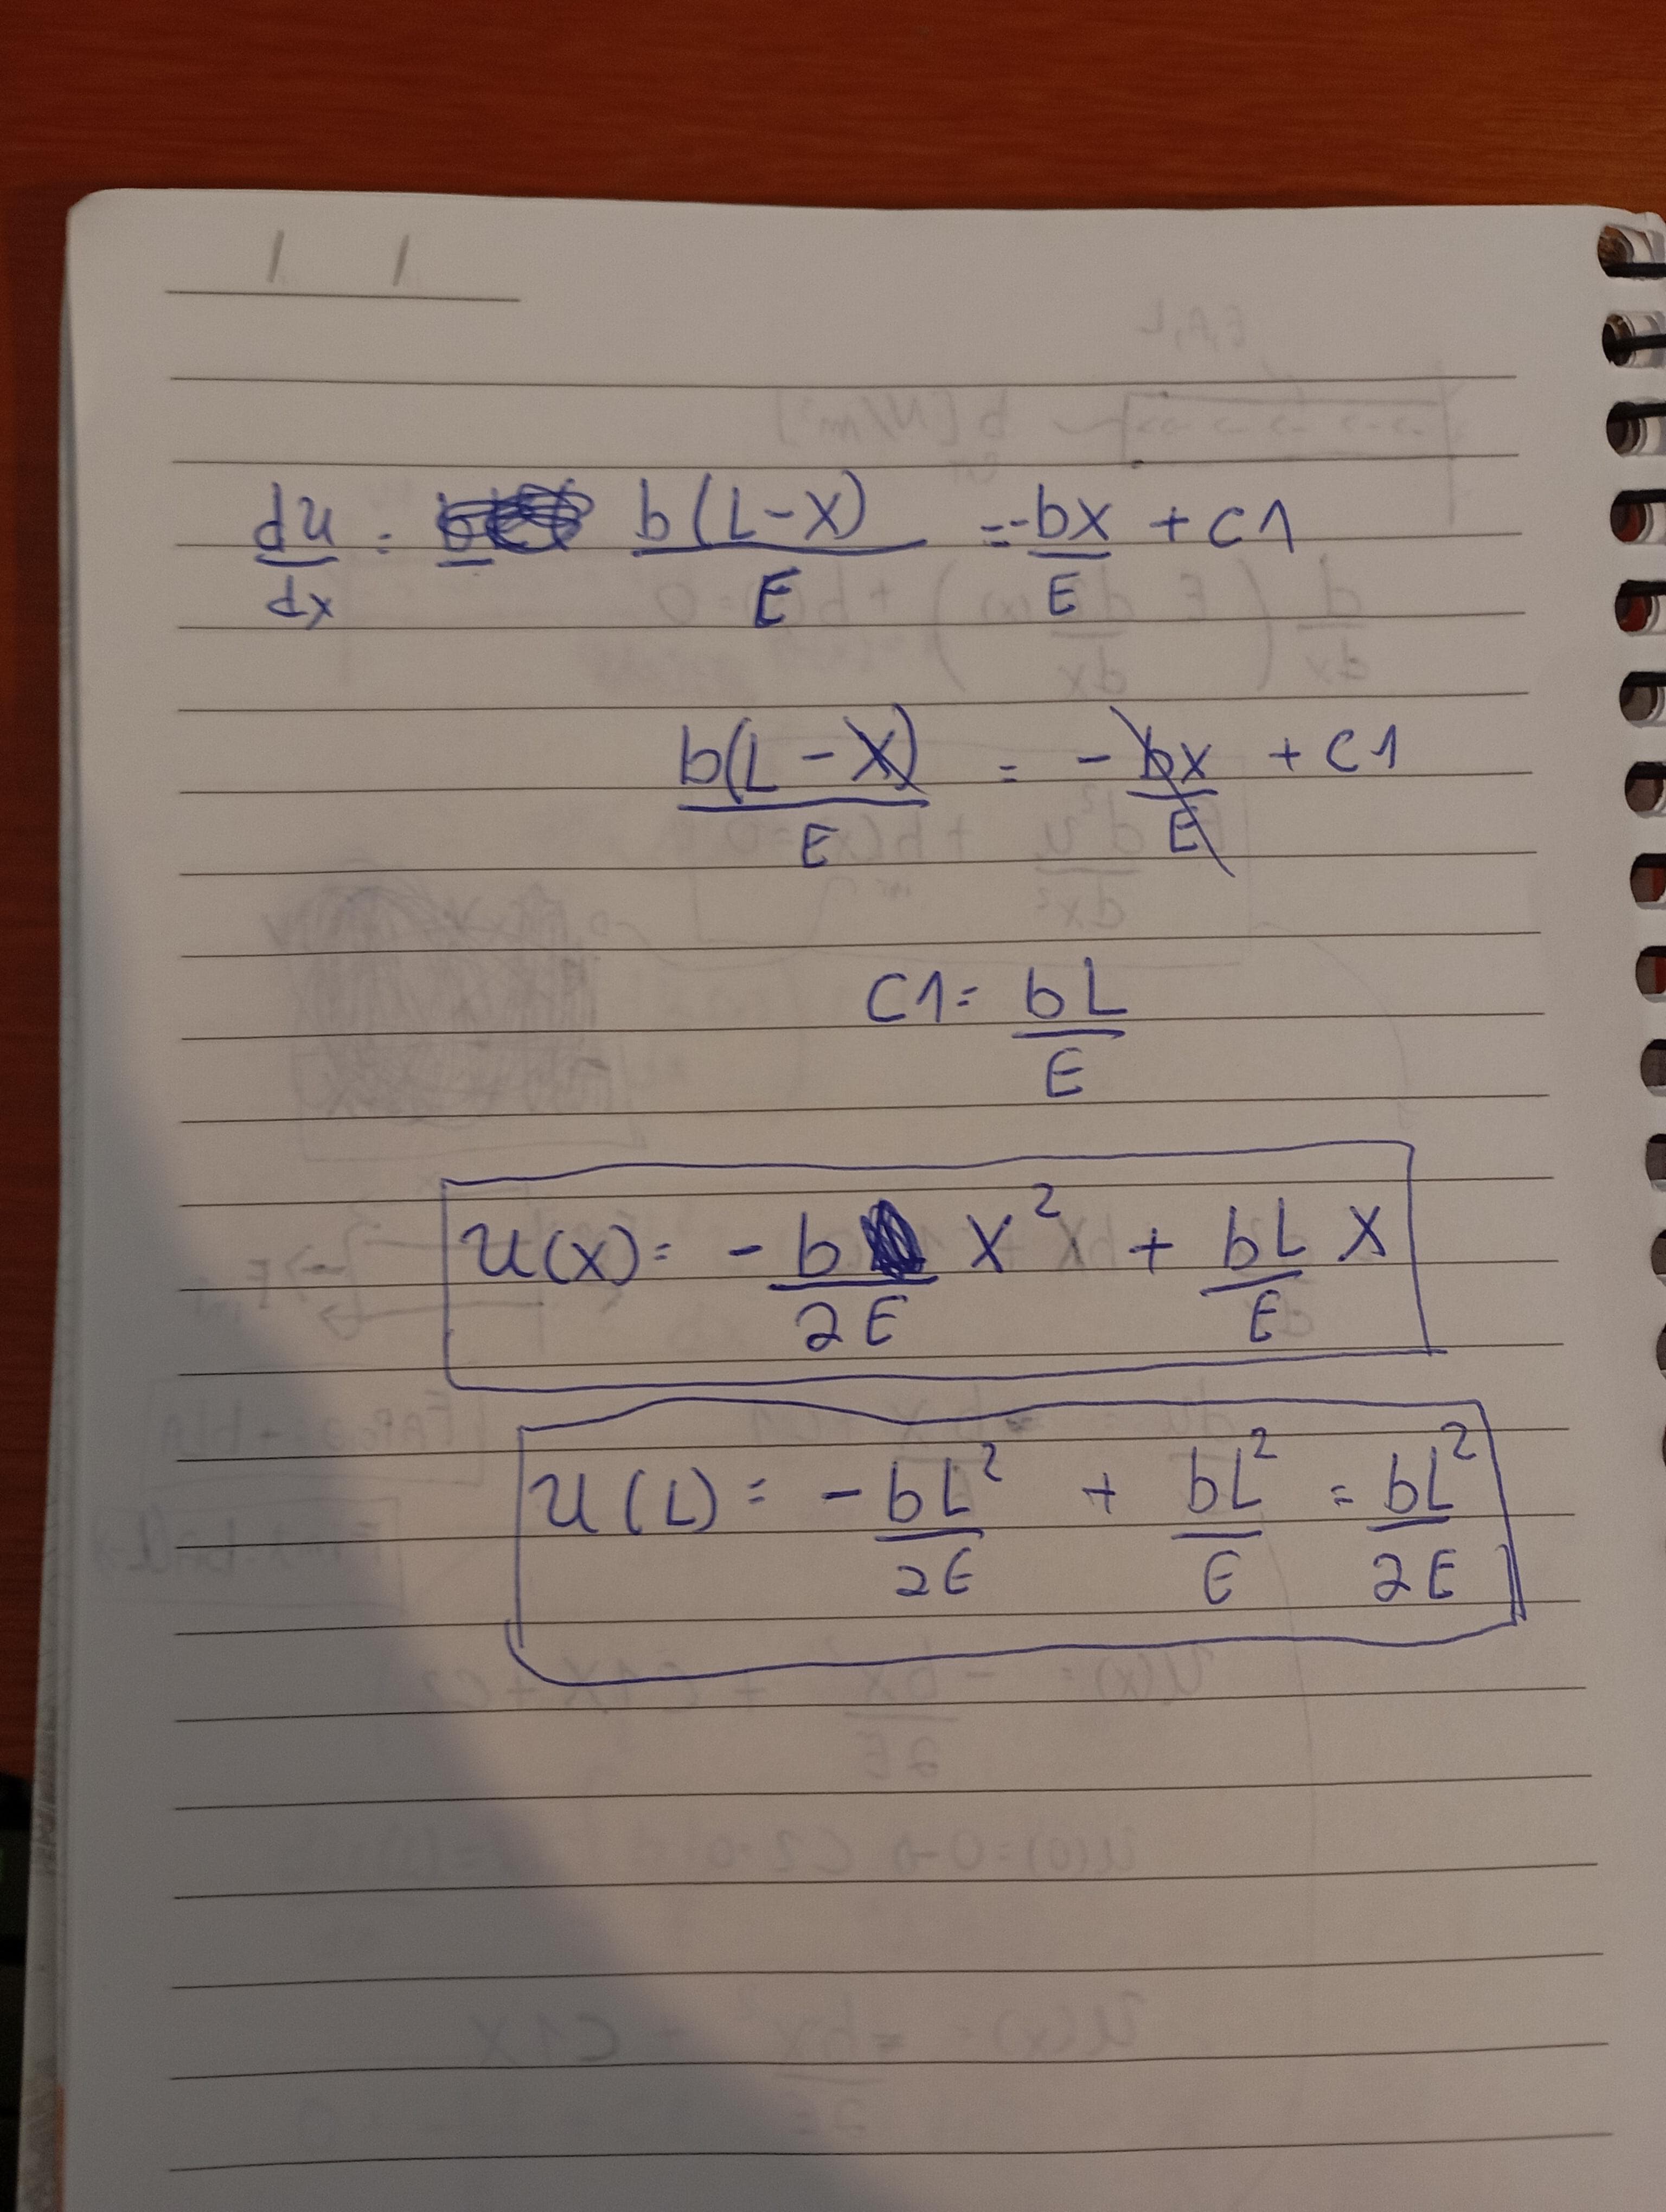 / /
du/dx = b(L-x)/E = -bx/E + C1
b(L-x)/E = -bx/E + C1
C1 = bL/E
u(x) = -b/2E x² + bL/E x
u(L) = -bL²/2E + bL²/E = bL²/2E